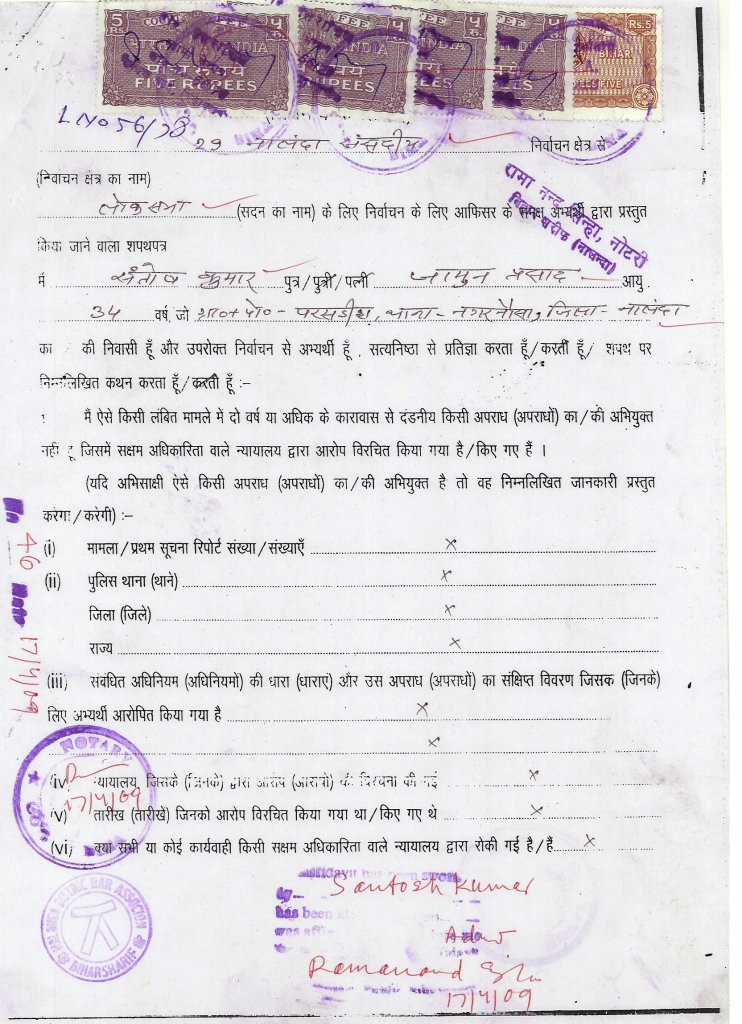 5 Rs. COURT FEE ५ रु.
FEE ५ रु.
FEE ५ रु.
FEE ५ रु.
Rs.5
INDIA
INDIA
INDIA
INDIA
BIHAR
पाँच रुपये
FIVE RUPEES
RUPEES
RUPEES
RUPEES
L No 56/08
29 नालंदा संसदीय निर्वाचन क्षेत्र से
(निर्वाचन क्षेत्र का नाम)
रामा नन्द सिन्हा, नोटरी
बिहार शरीफ (नालन्दा)
लोकसभा (सदन का नाम) के लिए निर्वाचन के लिए आफिसर के समक्ष अभ्यर्थी द्वारा प्रस्तुत
किया जाने वाला शपथपत्र
मैं संतोष कुमार पुत्र/पुत्री/पत्नी जामुन प्रसाद आयु
34 वर्ष, जो ग्रा०+पो०- परसडीहा, थाना- नगरनौसा, जिला- नालंदा
का की निवासी हूँ और उपरोक्त निर्वाचन से अभ्यर्थी हूँ , सत्यनिष्ठा से प्रतिज्ञा करता हूँ/करती हूँ/ शपथ पर
निम्नलिखित कथन करता हूँ/करती हूँ :–
मैं ऐसे किसी लंबित मामले में दो वर्ष या अधिक के कारावास से दंडनीय किसी अपराध (अपराधों) का/की अभियुक्त
नहीं हूँ जिसमें सक्षम अधिकारिता वाले न्यायालय द्वारा आरोप विरचित किया गया है/किए गए हैं ।
(यदि अभिसाक्षी ऐसे किसी अपराध (अपराधों) का/की अभियुक्त है तो वह निम्नलिखित जानकारी प्रस्तुत
करेगा/करेगी) :–
(i) मामला/प्रथम सूचना रिपोर्ट संख्या/संख्याएँ x
(ii) पुलिस थाना (थाने) x
जिला (जिले) x
राज्य x
(iii) संबंधित अधिनियम (अधिनियमों) की धारा (धाराएं) और उस अपराध (अपराधों) का संक्षिप्त विवरण जिसक (जिनके)
लिए अभ्यर्थी आरोपित किया गया है x
x
(iv) न्यायालय, जिसके (जिनके) द्वारा आरोप (आरोपों) की विरचना की गई x
(v) तारीख (तारीखें) जिनको आरोप विरचित किया गया था/किए गए थे x
(vi) क्या सभी या कोई कार्यवाही किसी सक्षम अधिकारिता वाले न्यायालय द्वारा रोकी गई है/हैं x
No 46 Date 17/4/09
NOTARY
17/4/09
BAR ASSOCIATION
BIHARSHARIF
has been
Santosh Kumar
Adv
Ramanand Sinha
17/4/09